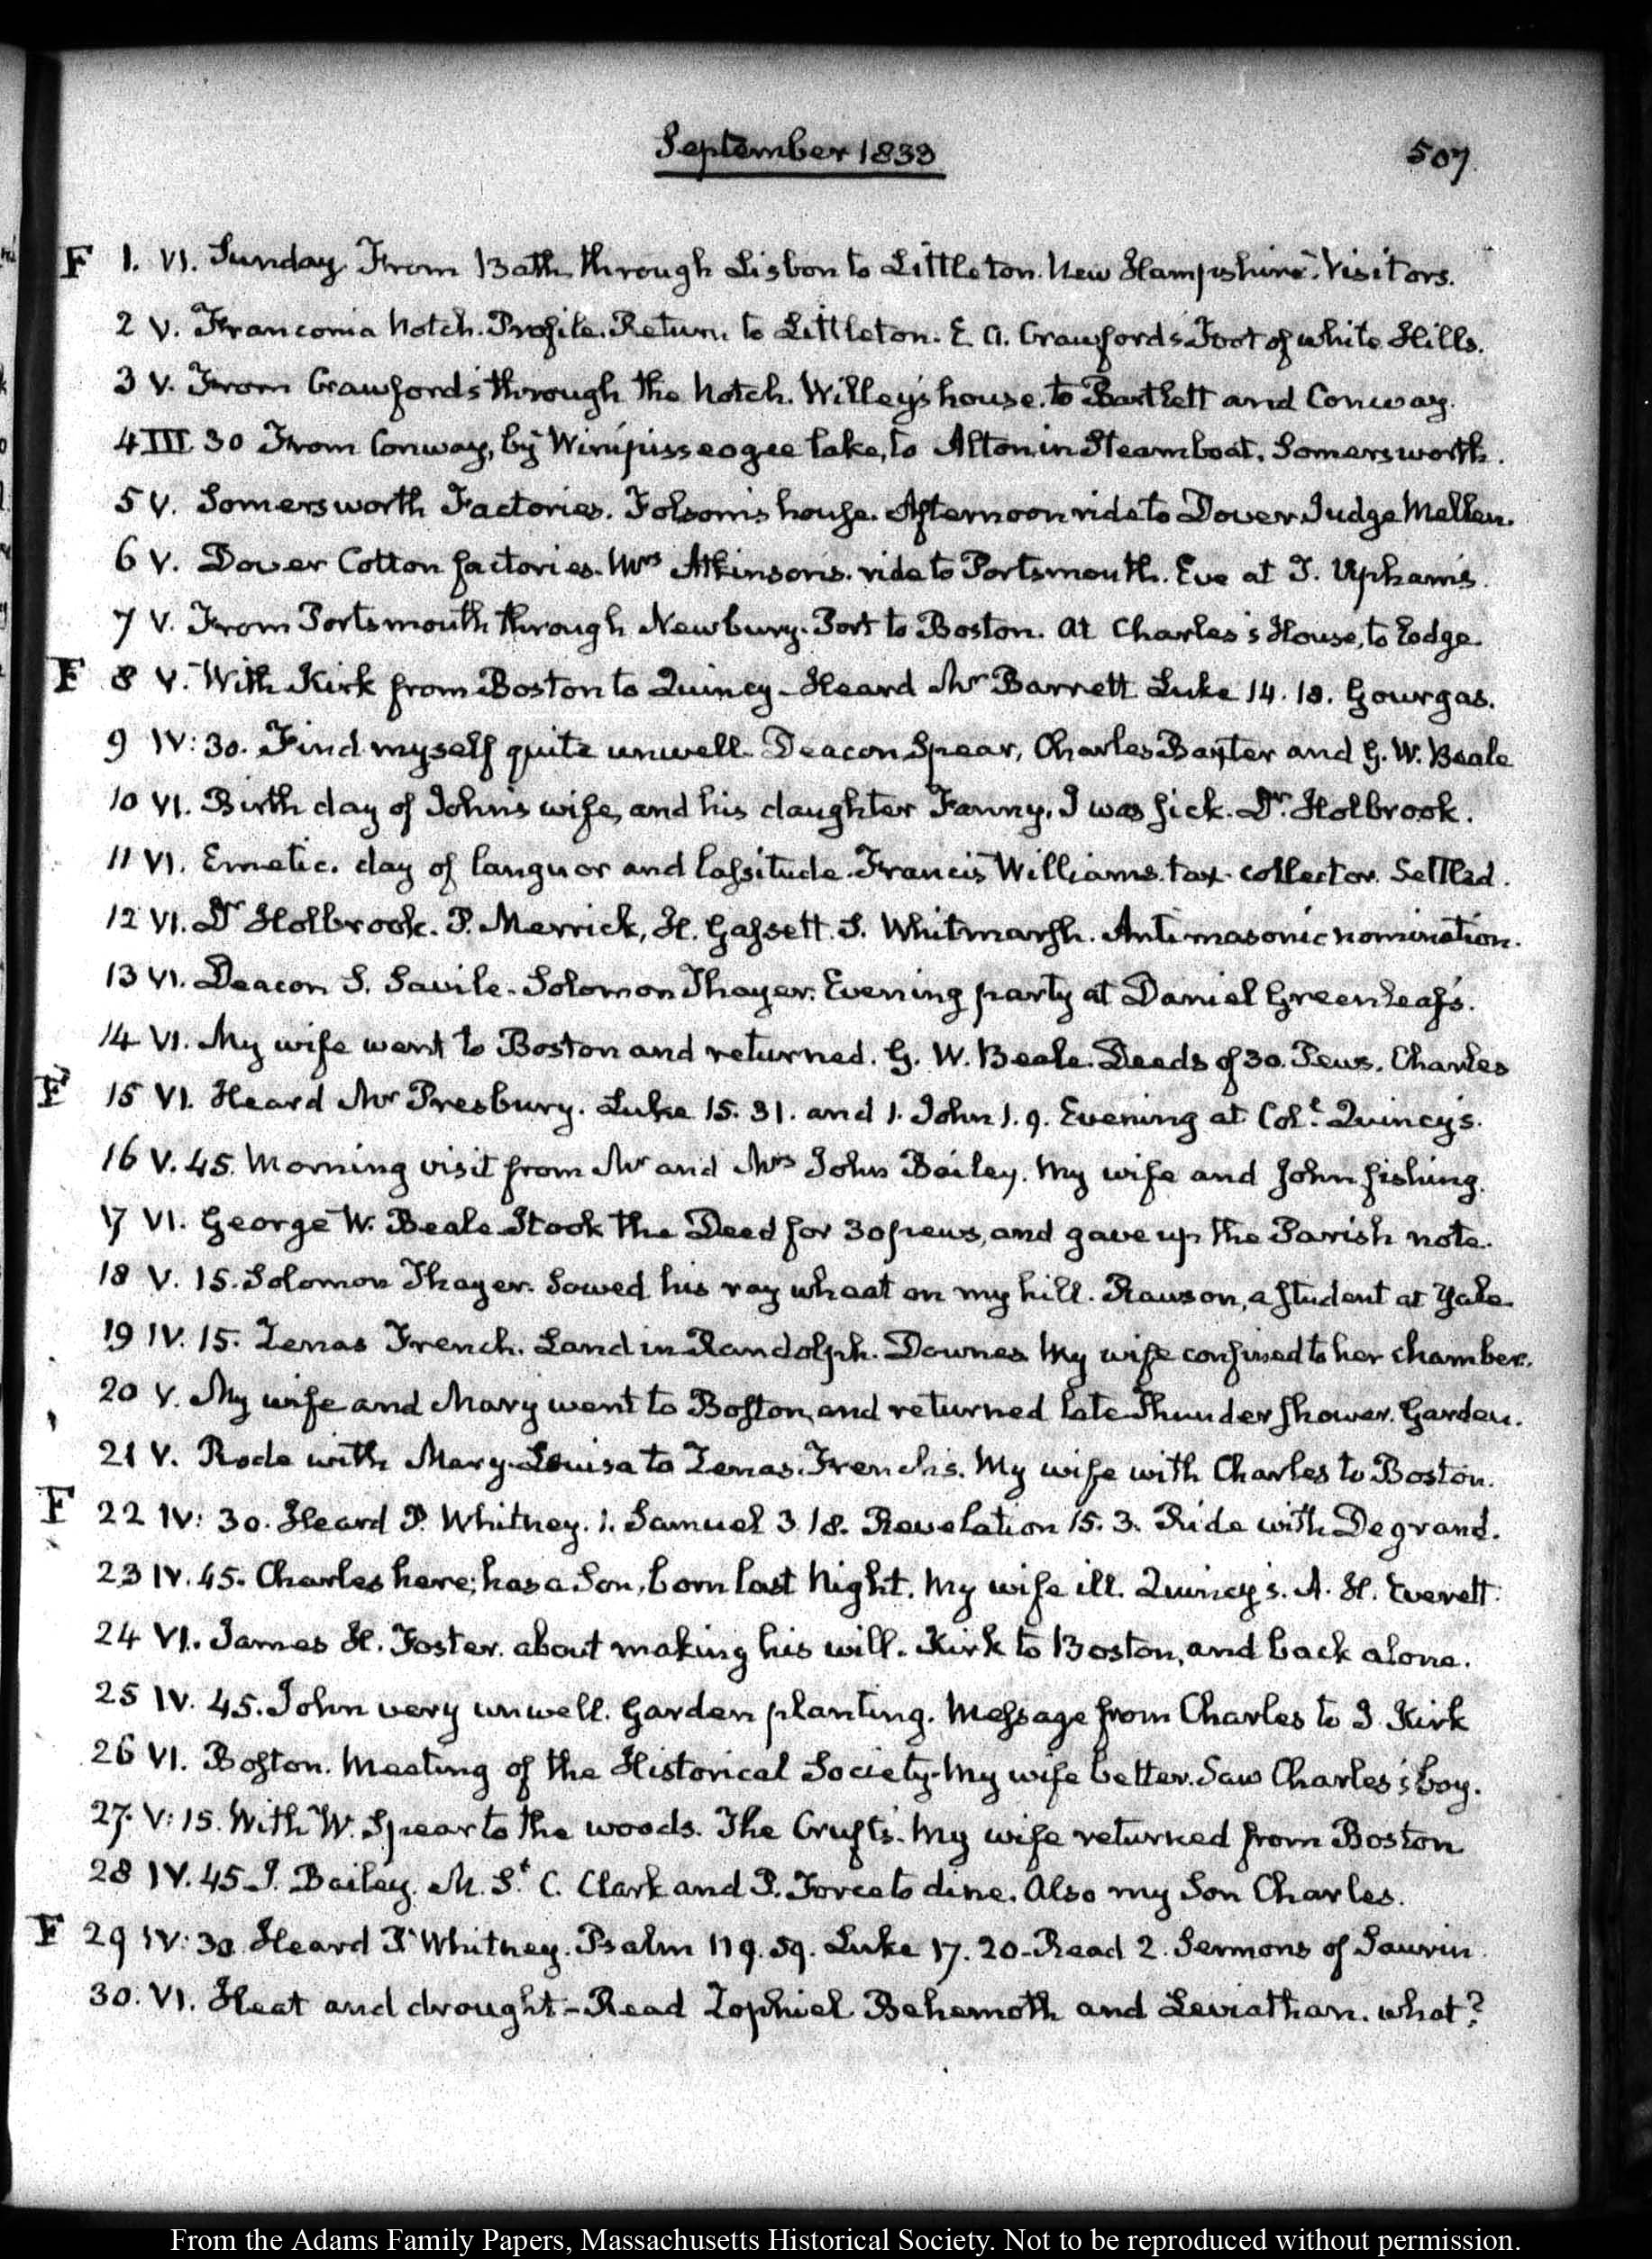 September 1833
507.
F 1. VI. Sunday. From Bath through Lisbon to Littleton. New Hampshire. Visitors.
2 V. Franconia Notch. Profile. Return to Littleton. E. A. Crawford's Foot of white Hills.
3 V. From Crawford's through the Notch. Willey's house. to Bartlett and Conway.
4 III. 30 From Conway, by Winipisseogee lake, to Alton in Steamboat. Somersworth.
5 V. Somersworth Factories. Folsom's house. Afternoon ride to Dover Judge Mellen.
6 V. Dover Cotton factories. Mrs Atkinson's. ride to Portsmouth. Eve at T. Upham's.
7 V. From Portsmouth through Newbury-Port to Boston. At Charles's House, to lodge.
F 8 V. With Kirk from Boston to Quincy - Heard Mr Barrett Luke 14. 18. Gourgas.
9 IV: 30. Find myself quite unwell. Deacon Spear, Charles Baxter and G. W. Beale
10 VI. Birth day of John's wife, and his daughter Fanny. I was sick. Dr. Holbrook.
11 VI. Emetic. day of languor and lassitude. Francis Williams. tax-collector. Settled.
12 VI. Dr Holbrook. P. Merrick, H. Gassett. S. Whitmarsh. Antimasonic nomination.
13 VI. Deacon S. Savile. Solomon Thayer. Evening party at Daniel Greenleaf's.
14 VI. My wife went to Boston and returned. G. W. Beale. Deeds of 30. Pews. Charles
F 15 VI. Heard Mr Presbury. Luke 15. 31. and 1. John 1. 9. Evening at Col. Quincy's.
16 V. 45. Morning visit from Mr and Mrs John Bailey. My wife and John fishing.
17 VI. George W. Beale. I took the Deed for 30 pews, and gave up the Parish note.
18 V. 15. Solomon Thayer. Sowed his ray wheat on my hill. Rawson, a student at Yale.
19 IV. 15. Zenas French. Land in Randolph. Downes My wife confined to her chamber.
20 V. My wife and Mary went to Boston, and returned late Thunder shower. Garden.
21 V. Rode with Mary-Louisa to Zenas French's. My wife with Charles to Boston.
F 22 IV: 30. Heard P. Whitney. 1. Samuel 3. 18. Revelation 15. 3. Ride with Degrand.
23 IV. 45. Charles here; has a Son, born last Night. My wife ill. Quincy's. A. H. Everett.
24 VI. James H. Foster. about making his will. Kirk to Boston, and back alone.
25 IV. 45. John very unwell. Garden planting. Message from Charles to J. Kirk
26 VI. Boston. Meeting of the Historical Society. My wife better. Saw Charles's boy.
27. V: 15. With W. Spear to the woods. The Crufts. My wife returned from Boston
28 IV. 45. J. Bailey. M. St C. Clark and P. Force to dine. Also my Son Charles.
F 29 IV: 30. Heard P. Whitney. Psalm 119. 59. Luke 17. 20. - Read 2. Sermons of Saurin.
30. VI. Heat and drought - Read Zophiel. Behemoth and Leviathan. what?
From the Adams Family Papers, Massachusetts Historical Society. Not to be reproduced without permission.